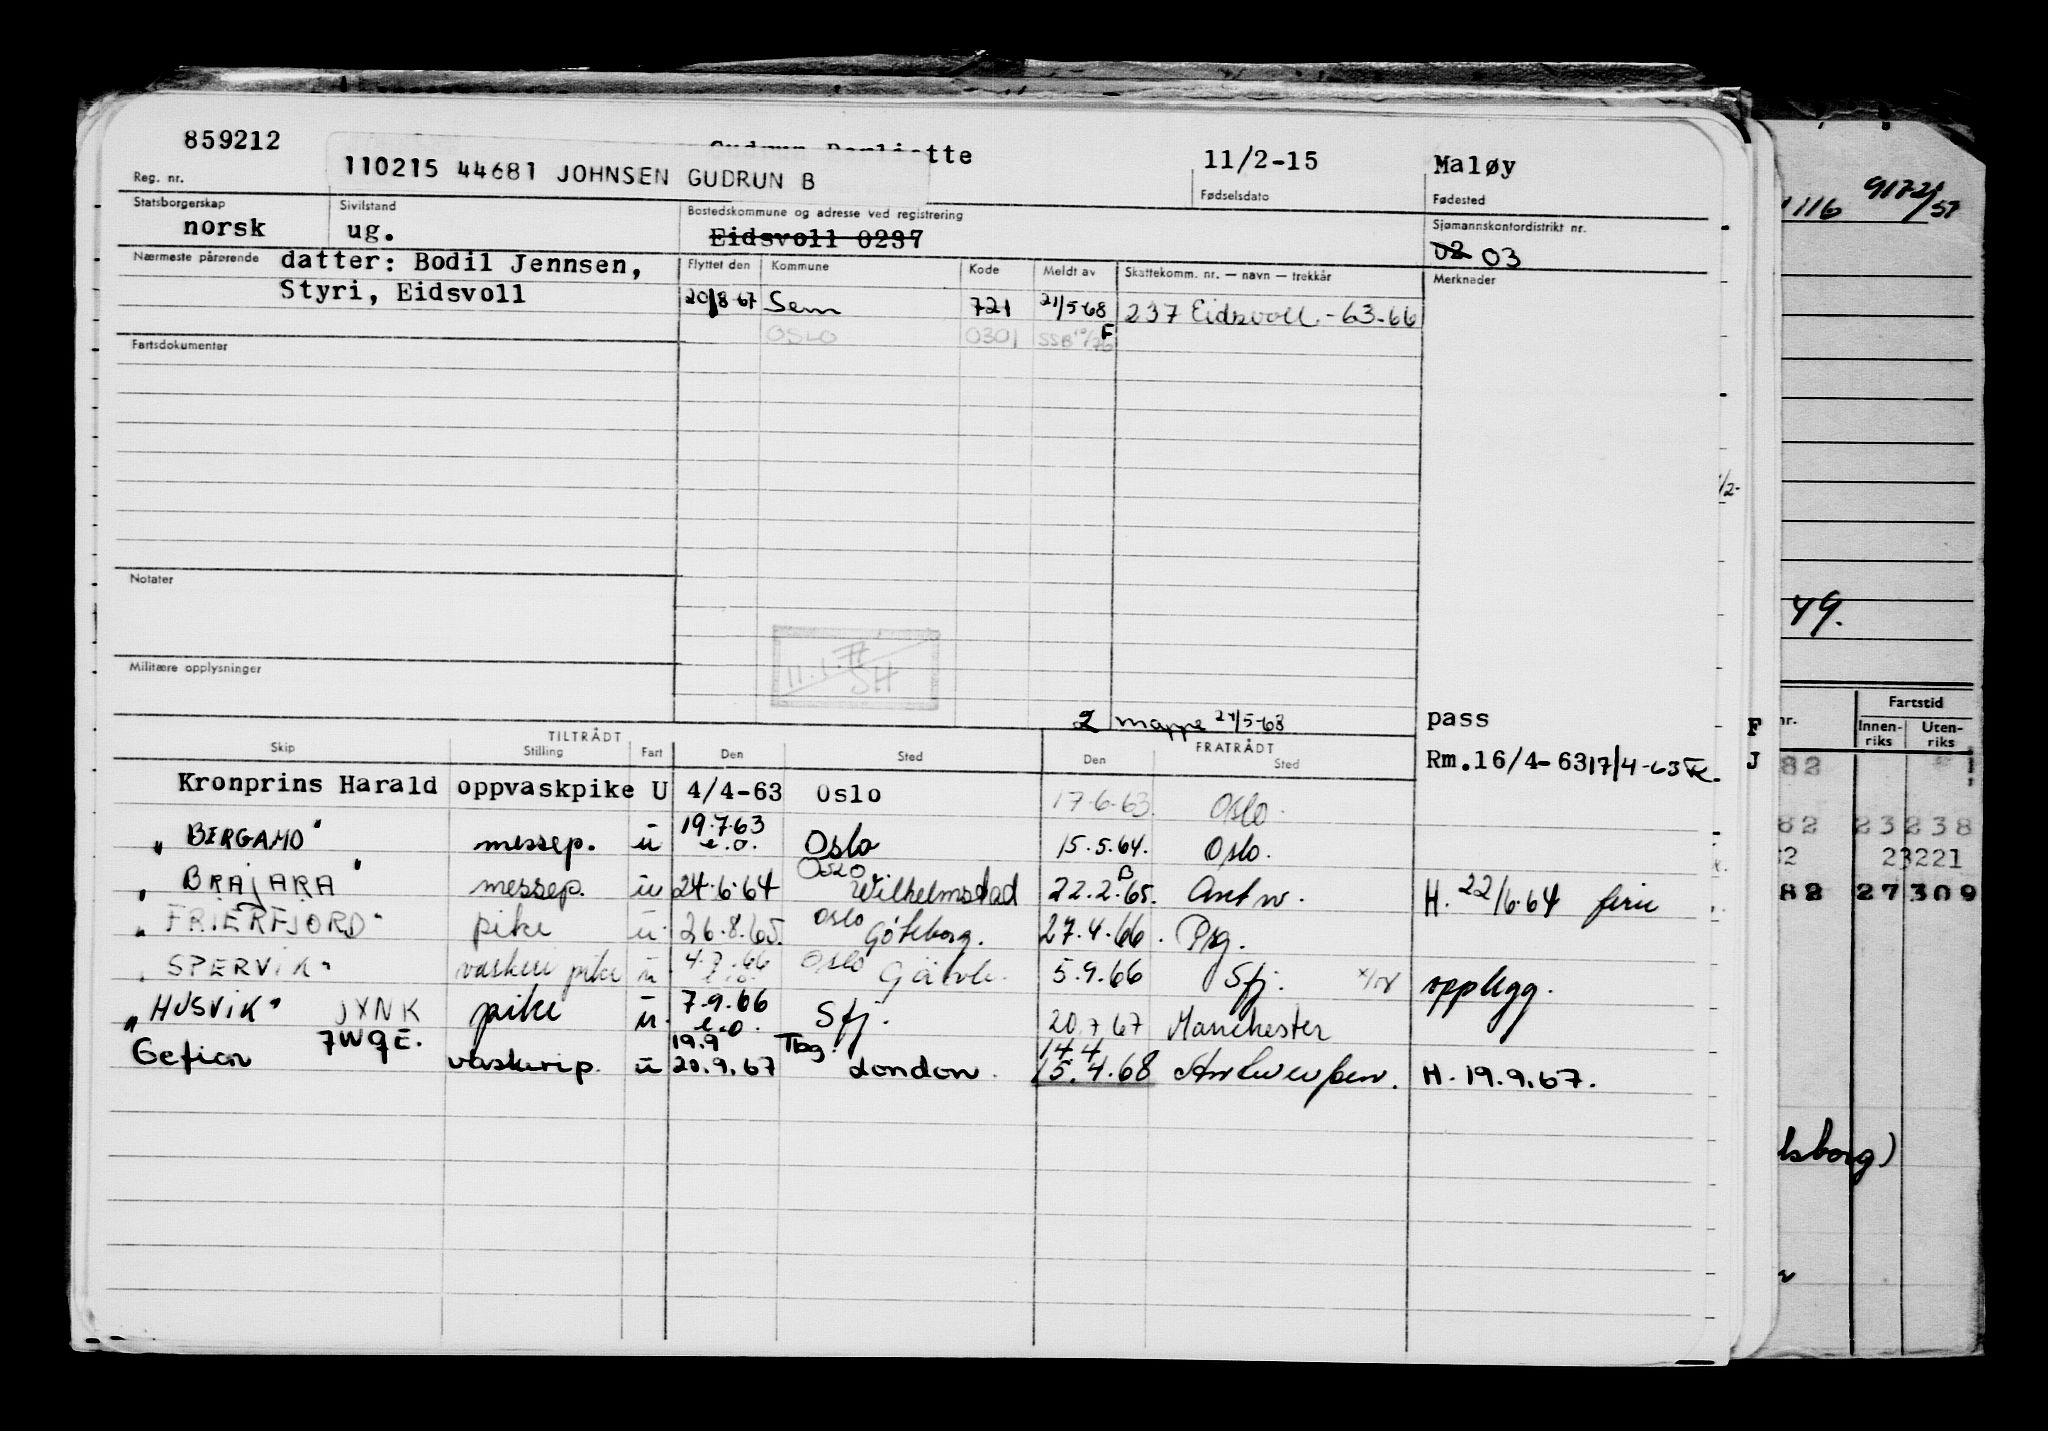 859212
110215 44681 JOHNSEN GUDRUN B
11/2-15
Maløy
Reg. nr.
Fødselsdato
Fødested
Statsborgerskap
Sivilstand
Bostedskommune og adresse ved registrering
Sjømannskontordistrikt nr.
norsk
ug.
Eidsvoll 0237
02 03
Nærmeste pårørende
datter: Bodil Jennsen,
Styri, Eidsvoll
Flyttet den
Kommune
Kode
Meldt av
Skattekomm. nr. — navn — trekkår
Merknader
20/8-67 Sem 721 21/5-68 237 Eidsvoll - 63-66
OSLO 0301 SSB 10/76 F
Fartsdokumenter
Notater
Militære opplysninger
2 mappe 21/5-68
pass
TILTRÅDT
FRATRÅDT
Skip
Stilling
Fart
Den
Sted
Den
Sted
Rm.16/4-63 17/4-63
Kronprins Harald oppvaskpike U 4/4-63 Oslo 17-6-63 Oslo.
"BERGAMO" messep. u 19.7.63 e.o. Oslo 15.5.64. Oslo.
"BRAJARA" messep. u 24.6.64 Oslo Wilhelmstad 22.2.65. Antw. H. 22/6-64 ferie
"FRIERFJORD" pike u 26.8.65. Oslo Göteborg. 27.4.66. Psg.
"SPERVIK" vaskeripike u 4.7.66 e.o. Oslo 5.9.66 Sfj. opplegg.
"HUSVIK" JXNK pike u. 7.9.66 e.o. Sfj. 20.7.67 Manchester
Gefion 7WQE. vaskerip. u 19.9 20.9.67 Tbg. London. 14.4 15.4.68 Antwerpen. H. 19.9.67.
1116 9172/57
49.
nr.
Fartstid
Innen-
riks
Uten-
riks
F
J
82
82 23238
2 23221
82 27309
lsborg)